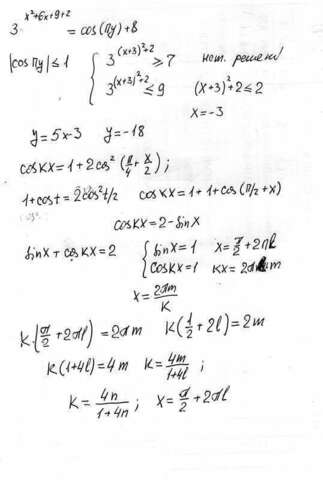 3^(x²+6x+9+2) = cos(πy)+8
|cos πy| ≤ 1 { 3^((x+3)²+2) ≥ 7 нет. решени
3^((x+3)²+2) ≤ 9 (x+3)²+2 ≤ 2
x=-3
y=5x-3 y=-18
cos kx = 1+2cos²(π/4 + x/2);
1+cos t = 2cos² t/2 cos kx = 1+1+cos(π/2+x)
cos kx = 2 - sin x
sin x + cos kx = 2 { sin x = 1 x = π/2 + 2πl
cos kx = 1 kx = 2πm
x = 2πm/k
k(π/2 + 2πl) = 2πm k(1/2 + 2l) = 2m
k(1+4l) = 4m k = 4m/(1+4l) ;
k = 4n/(1+4n) ; x = π/2 + 2πl